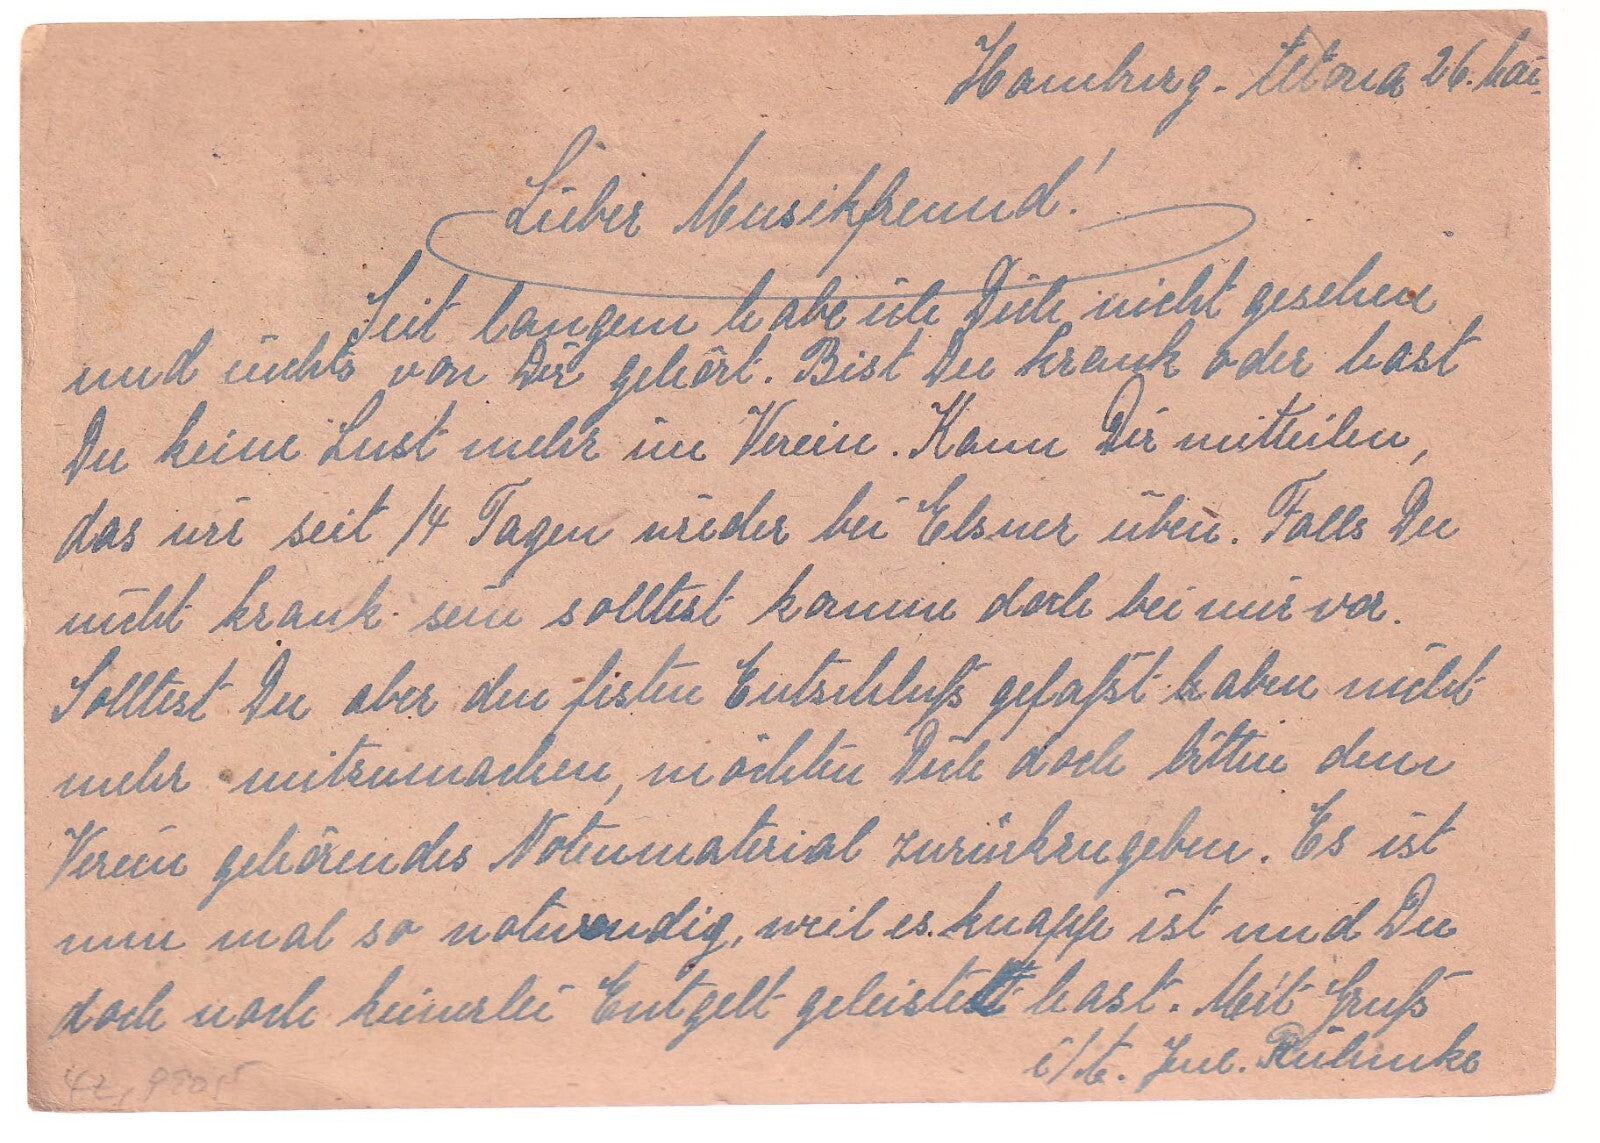 Hamburg-Altona 26. Mai
Lieber Musikfreund!
Seit langem habe ich Dich nicht gesehen
und nichts von Dir gehört. Bist Du krank oder hast
Du keine Lust mehr im Verein. Kann Dir mitteilen,
das wir seit 14 Tagen wieder bei Elsner üben. Falls Du
nicht krank sein solltest komme doch bei mir vor.
Solltest Du aber den festen Entschluß gefaßt haben nicht
mehr mitzumachen, möchten Dich doch bitten dem
Verein gehörendes Notenmaterial zurückzugeben. Es ist
nun mal so notwendig, weil es knapp ist und Du
doch noch keinerlei Entgelt geleistet hast. Mit Gruß
i/A. Jul.